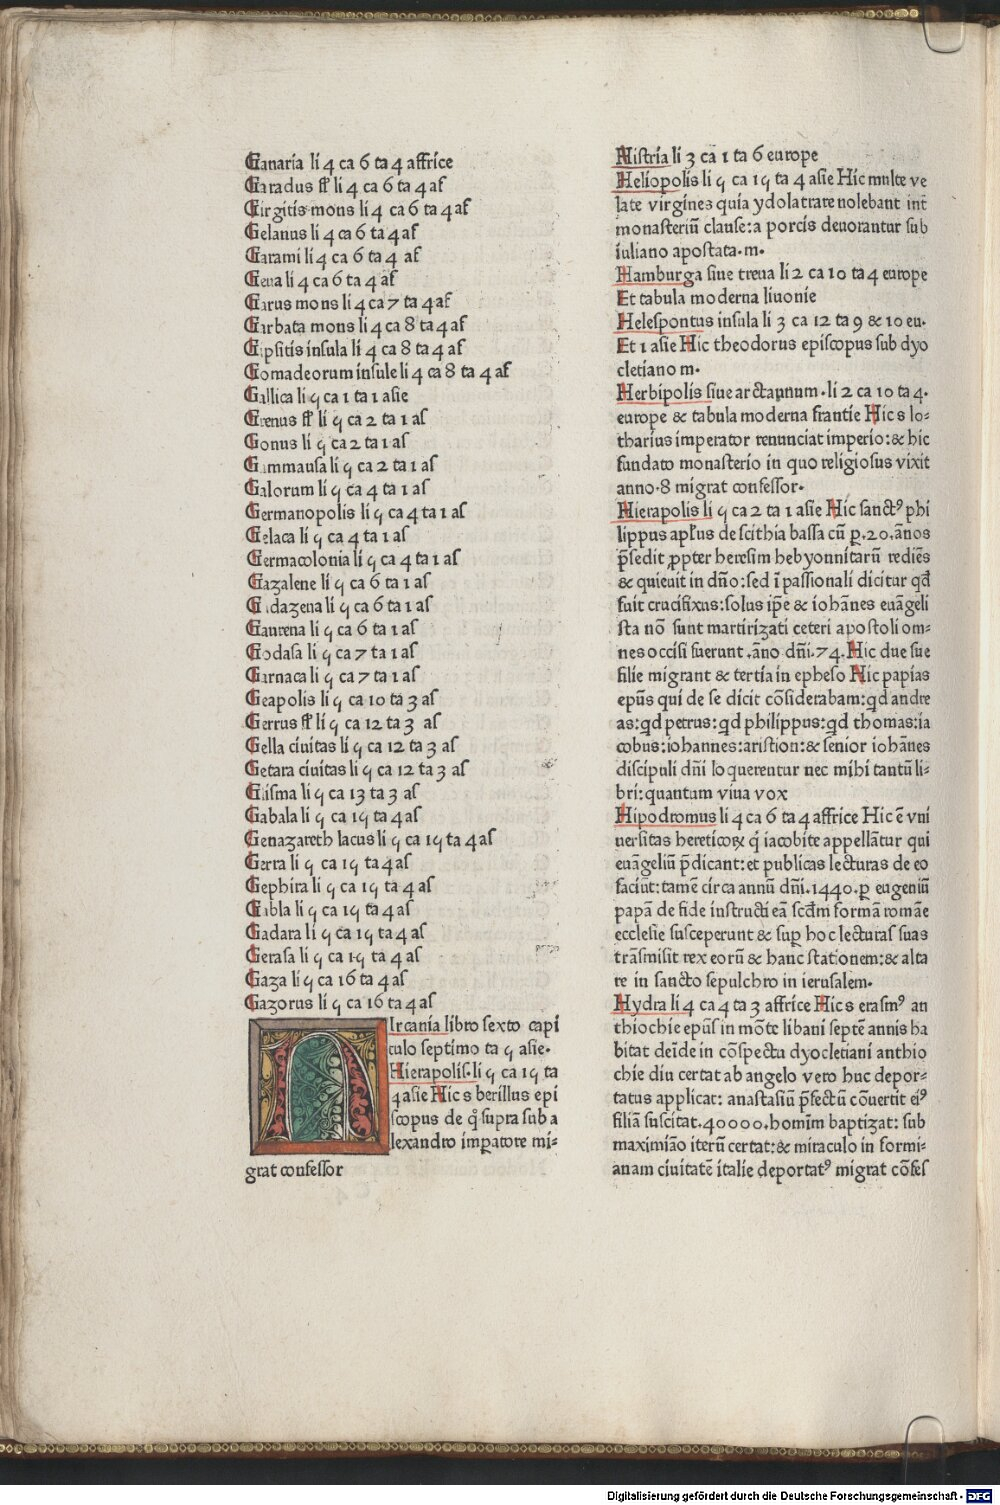 Ganaria li 4 ca 6 ta 4 affrice
Garadus fl̃ li 4 ca 6 ta 4 af
Girgitis mons li 4 ca 6 ta 4 af
Gelanus li 4 ca 6 ta 4 af
Garami li 4 ca 6 ta 4 af
Geua li 4 ca 6 ta 4 af
Garus mons li 4 ca 7 ta 4 af
Garbata mons li 4 ca 8 ta 4 af
Gipsitis insula li 4 ca 8 ta 4 af
Gomadeorum insule li 4 ca 8 ta 4 af
Gallica li 5 ca 1 ta 1 asie
Grenus fl̃ li 5 ca 2 ta 1 as
Gonus li 5 ca 2 ta 1 as
Gammausa li 5 ca 2 ta 1 as
Galorum li 5 ca 4 ta 1 as
Germanopolis li 5 ca 4 ta 1 as
Gelaca li 5 ca 4 ta 1 as
Germacolonia li 5 ca 4 ta 1 as
Gazalene li 5 ca 6 ta 1 as
Gidazena li 5 ca 6 ta 1 as
Gaurena li 5 ca 6 ta 1 as
Godasa li 5 ca 7 ta 1 as
Garnaca li 5 ca 7 ta 1 as
Geapolis li 5 ca 10 ta 3 as
Gerrus fl̃ li 5 ca 12 ta 3 as
Gella ciuitas li 5 ca 12 ta 3 as
Getara ciuitas li 5 ca 12 ta 3 as
Glisma li 5 ca 13 ta 3 as
Gabala li 5 ca 15 ta 4 as
Genazareth lacus li 5 ca 15 ta 4 as
Gerra li 5 ca 15 ta 4 as
Gephira li 5 ca 15 ta 4 as
Gabla li 5 ca 15 ta 4 as
Gadara li 5 ca 15 ta 4 as
Gerasa li 5 ca 15 ta 4 as
Gaza li 5 ca 16 ta 4 as
Gazorus li 5 ca 16 ta 4 as
HIrcania libro sexto capi
tulo septimo ta 5 asie.
Hierapolis. li 5 ca 15 ta
4 asie Hic s berillus epi
scopus de q̃ supra sub a
lexandro imꝑatore mi⸗
grat confessor
Histria li 3 ca 1 ta 6 europe
Heliopolis li 5 ca 15 ta 4 asie Hic multe ve
late virgines quia ydolatrare nolebant int̃
monasteriũ clause: a porcis deuorantur sub
iuliano apostata. m.
Hamburga siue treua li 2 ca 10 ta 4 europe
Et tabula moderna liuonie
Helespontus insula li 3 ca 12 ta 9 & 10 eu.
Et 1 asie Hic theodorus episcopus sub dyo
cletiano m.
Herbipolis siue arctaunum. li 2 ca 10 ta 4.
europe & tabula moderna frantie Hic s lo⸗
tharius imperator renunciat imperio: & hic
fundato monasterio in quo religiosus vixit
anno. 8 migrat confessor.
Hierapolis li 5 ca 2 ta 1 asie Hic sanctꝰ phi
lippus apl̃us de scithia bassa cũ ꝑ. 20. ãnos
p̃sedit ꝓpter heresim hebyonnitarũ rediẽs
& quieuit in dño: sed ĩ passionali dicitur qđ
fuit crucifixus: solus ip̃e & iohãnes euãgeli
sta nõ sunt martirizati ceteri apostoli om⸗
nes occisi fuerunt. ãno dñi. 74. Hic due sue
filie migrant & tertia in epheso Hic papias
ep̃us qui de se dicit cõsiderabam: qđ andre
as: qđ petrus: qđ philippus: qđ thomas: ia
cobus: iohannes: aristion: & senior iohãnes
discipuli dñi loquerentur nec mihi tantũ li⸗
bri: quantum viua vox
Hipodromus li 4 ca 6 ta 4 affrice Hic ẽ vni
uersitas hereticoꝝ q̃ iacobite appellãtur qui
euãgeliũ p̃dicant: et publicas lecturas de eo
faciũt: tamẽ circa annũ dñi. 1440. ꝑ eugeniũ
papã de fide instructi eã scđm formã romãe
ecclesie susceperunt & suꝑ hoc lecturas suas
trãsmisit rex eorũ & hanc stationem: & alta
re in sancto sepulchro in ierusalem.
Hydra li 4 ca 4 ta 3 affrice Hic s erasmꝰ an
thiochie ep̃us in mõte libani septẽ annis ha
bitat deĩde in cõspectu dyocletiani anthio
chie diu certat ab angelo vero huc depor⸗
tatus applicat: anastasiũ p̃fectũ cõuertit eiꝰ
filiã suscitat. 40000. homĩm baptizat: sub
maximião iterũ certat: & miraculo in formi⸗
anam ciuitatẽ italie deportatꝰ migrat cõfes
Digitalisierung gefördert durch die Deutsche Forschungsgemeinschaft - DFG